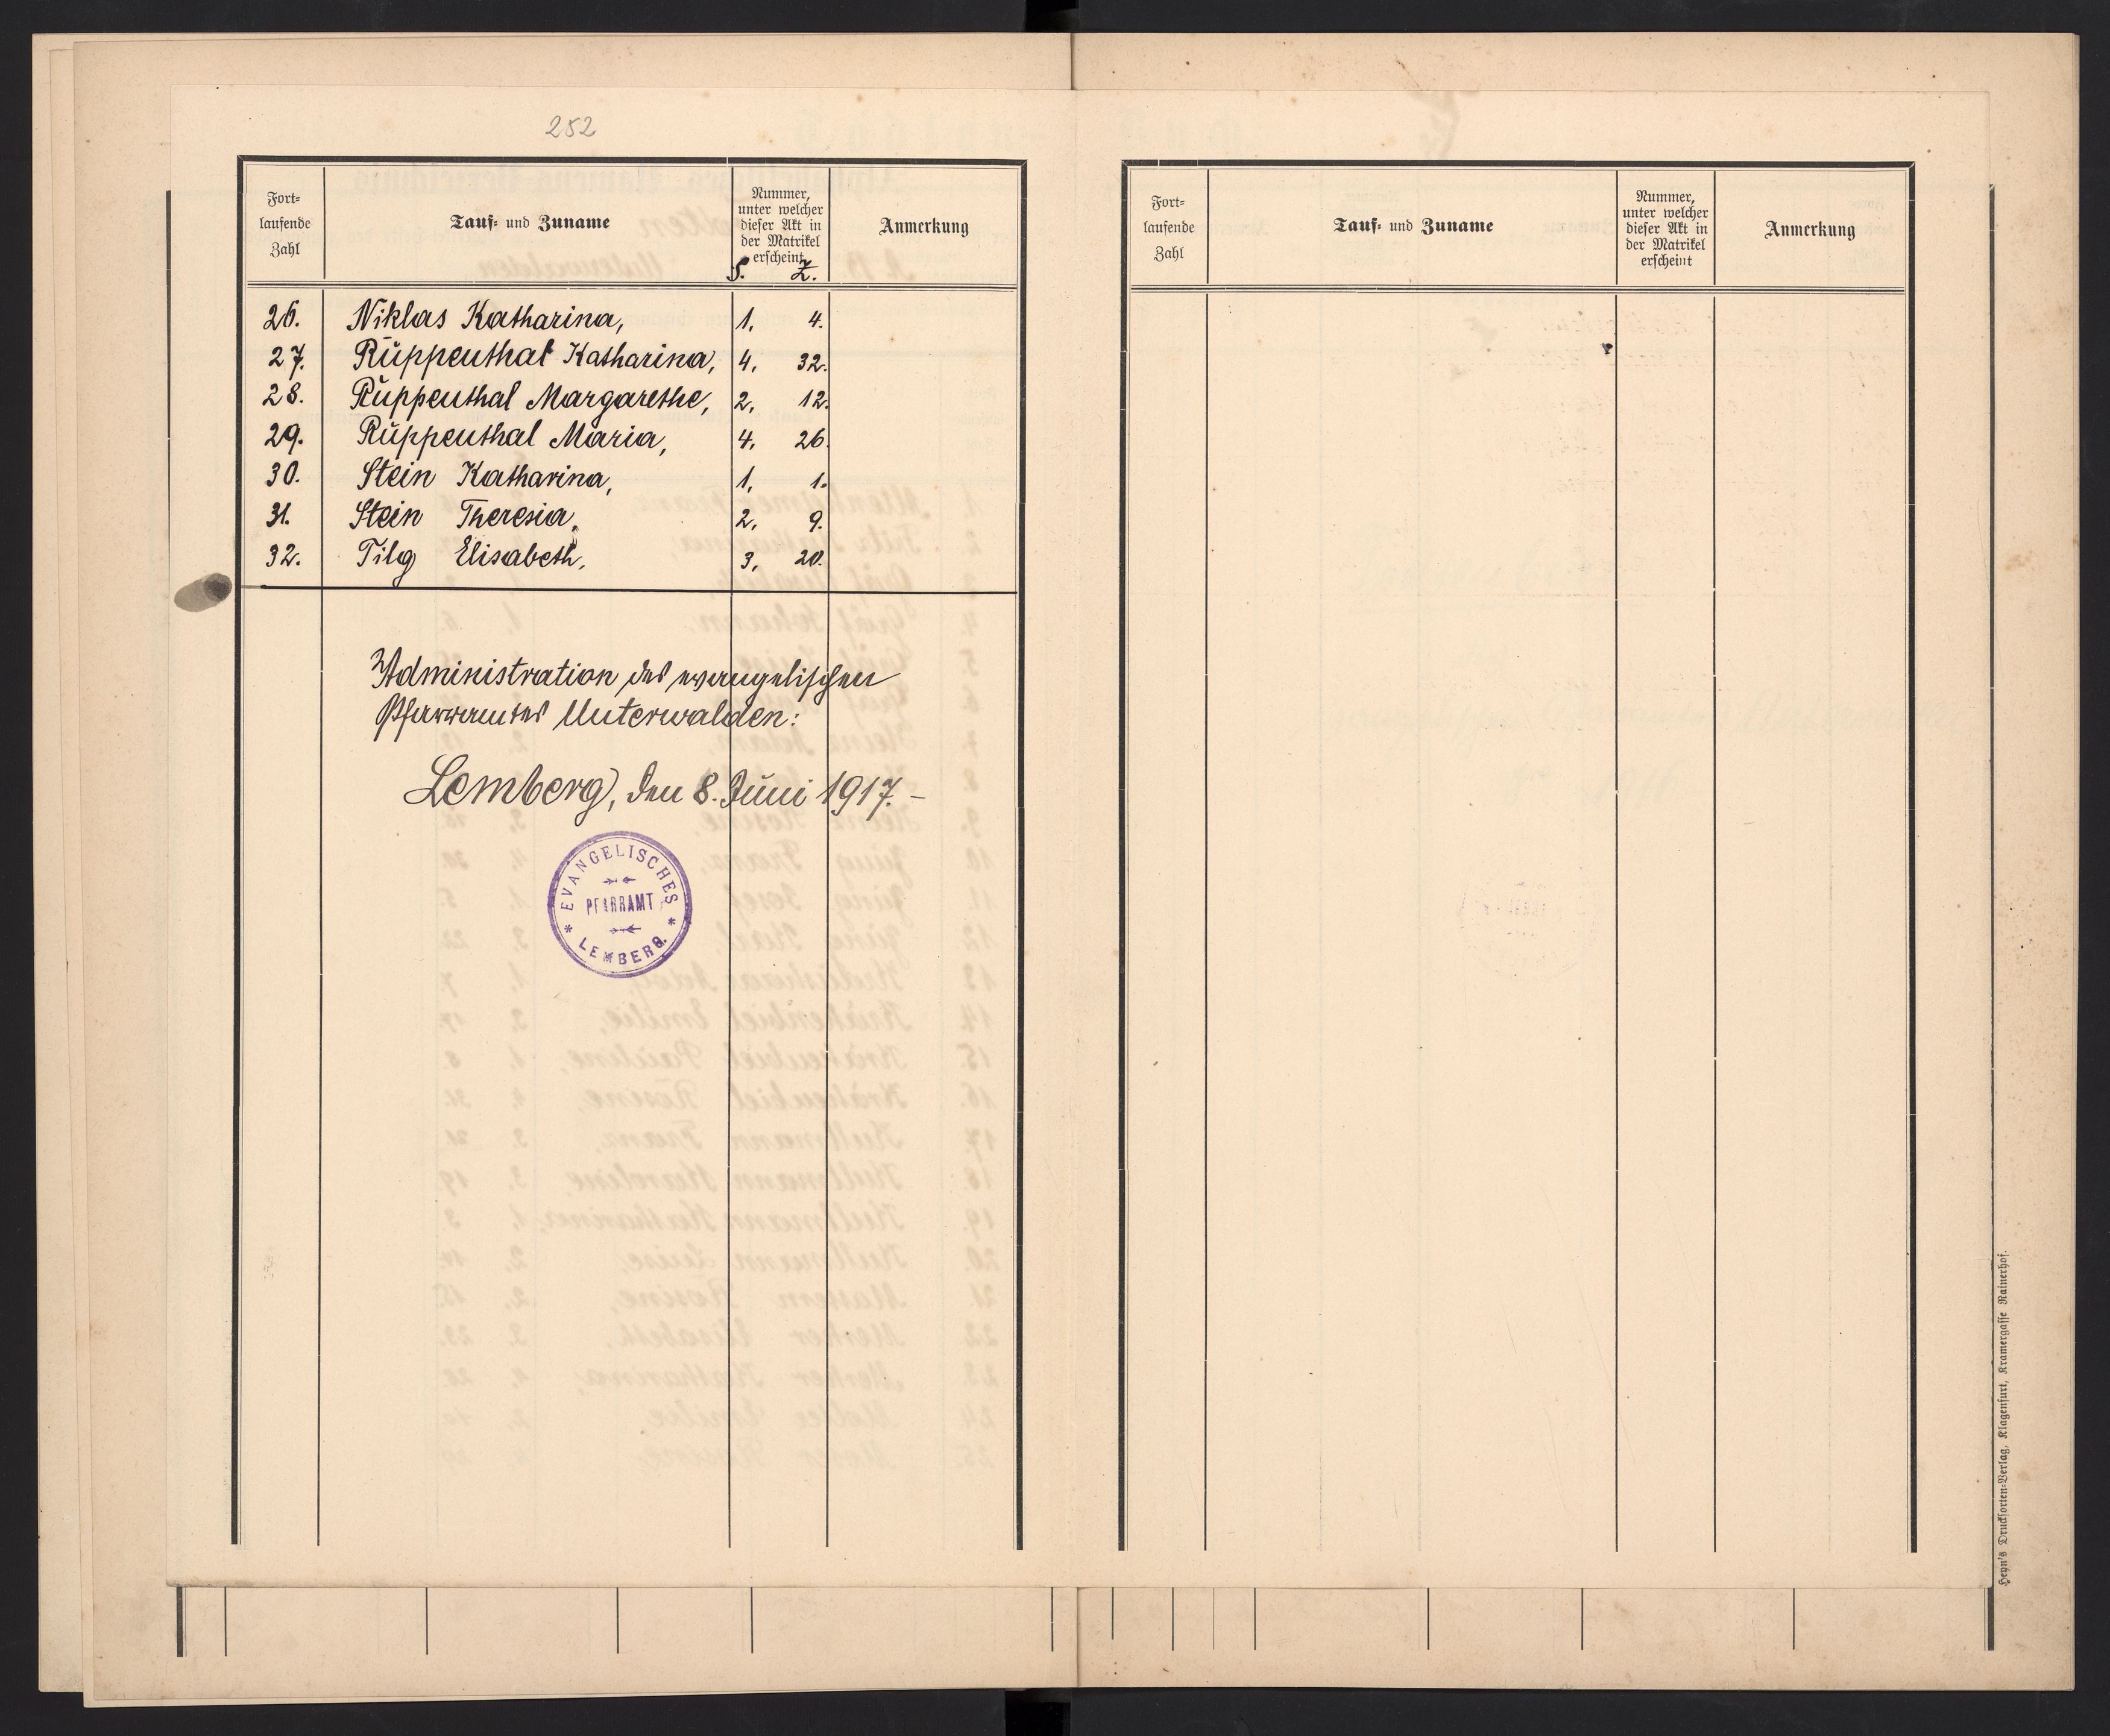 252
Fort-
laufende
Zahl
Tauf- und Zuname
Nummer,
unter welcher
dieser Akt in
der Matrikel
erscheint
S. Z.
Anmerkung
26. Niklas Katharina, 1, 4.
27. Rŭppenthal Katharina, 4, 32.
28. Rŭppenthal Margarethe, 2, 12.
29. Rŭppenthal Maria, 4, 26.
30. Stein Katharina, 1, 1.
31. Stein Theresia, 2, 9.
32. Tilg Elisabeth, 3, 20.
Administration des evangelischen
Pfarramtes Unterwalden:
Lemberg, den 8. Jŭni 1917.-
EVANGELISCHES
PFARRAMT
* LEMBERG. *
Fort-
laufende
Zahl
Tauf- und Zuname
Nummer,
unter welcher
dieser Akt in
der Matrikel
erscheint
Anmerkung
Heyn's Drucksorten-Verlag, Klagenfurt, Kramergasse Rainerhof.